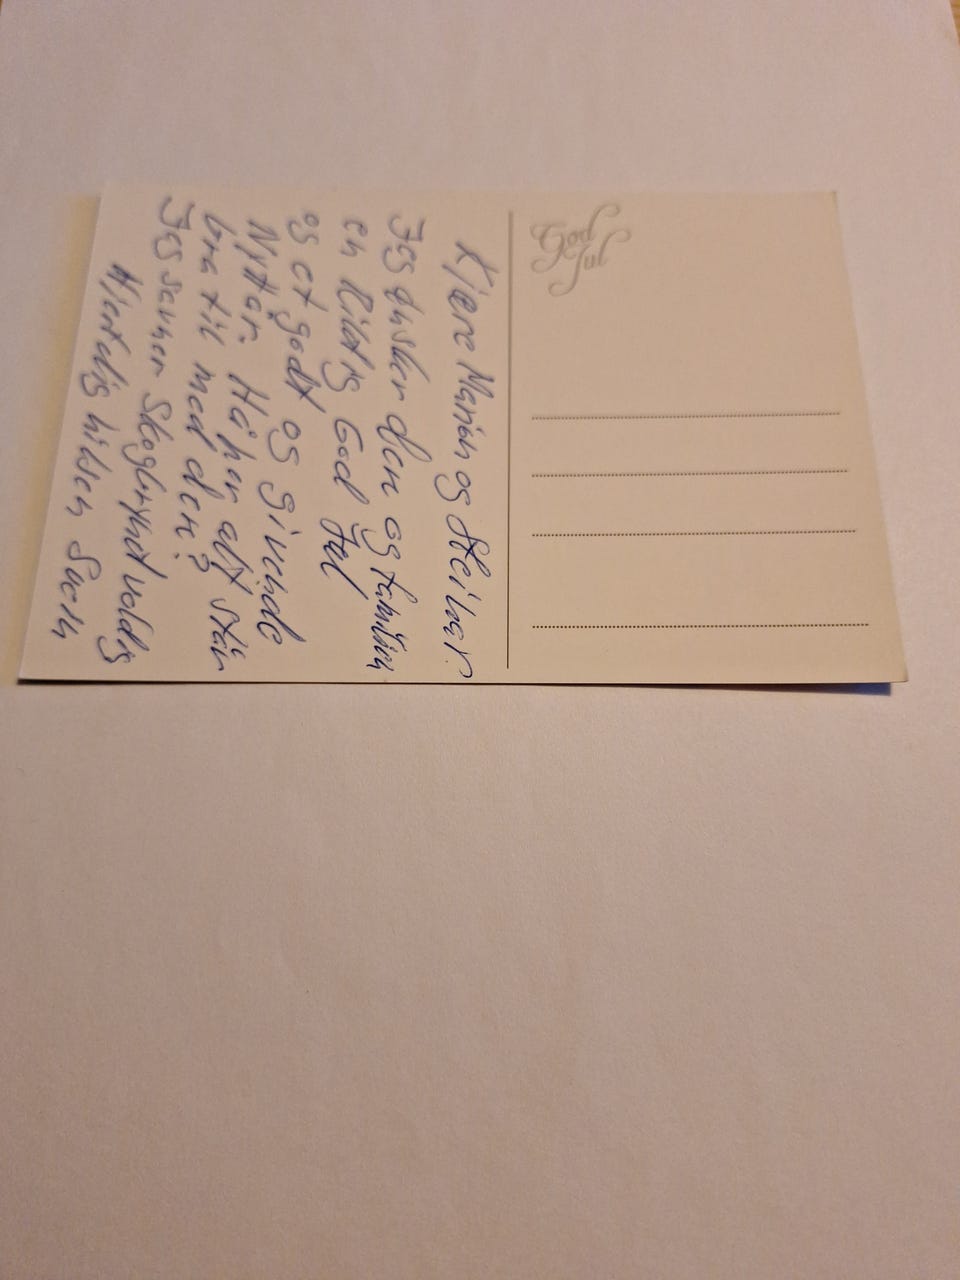 God
Jul
Kjære Marion og Steinar.
Jeg ønsker den og familien
en Riktig God Jul
og et godt og givende
Nyttår. Håper alt står
bra till med den?
Jeg savner Skogbrynet veldig
Hjertelig hilsen Svein